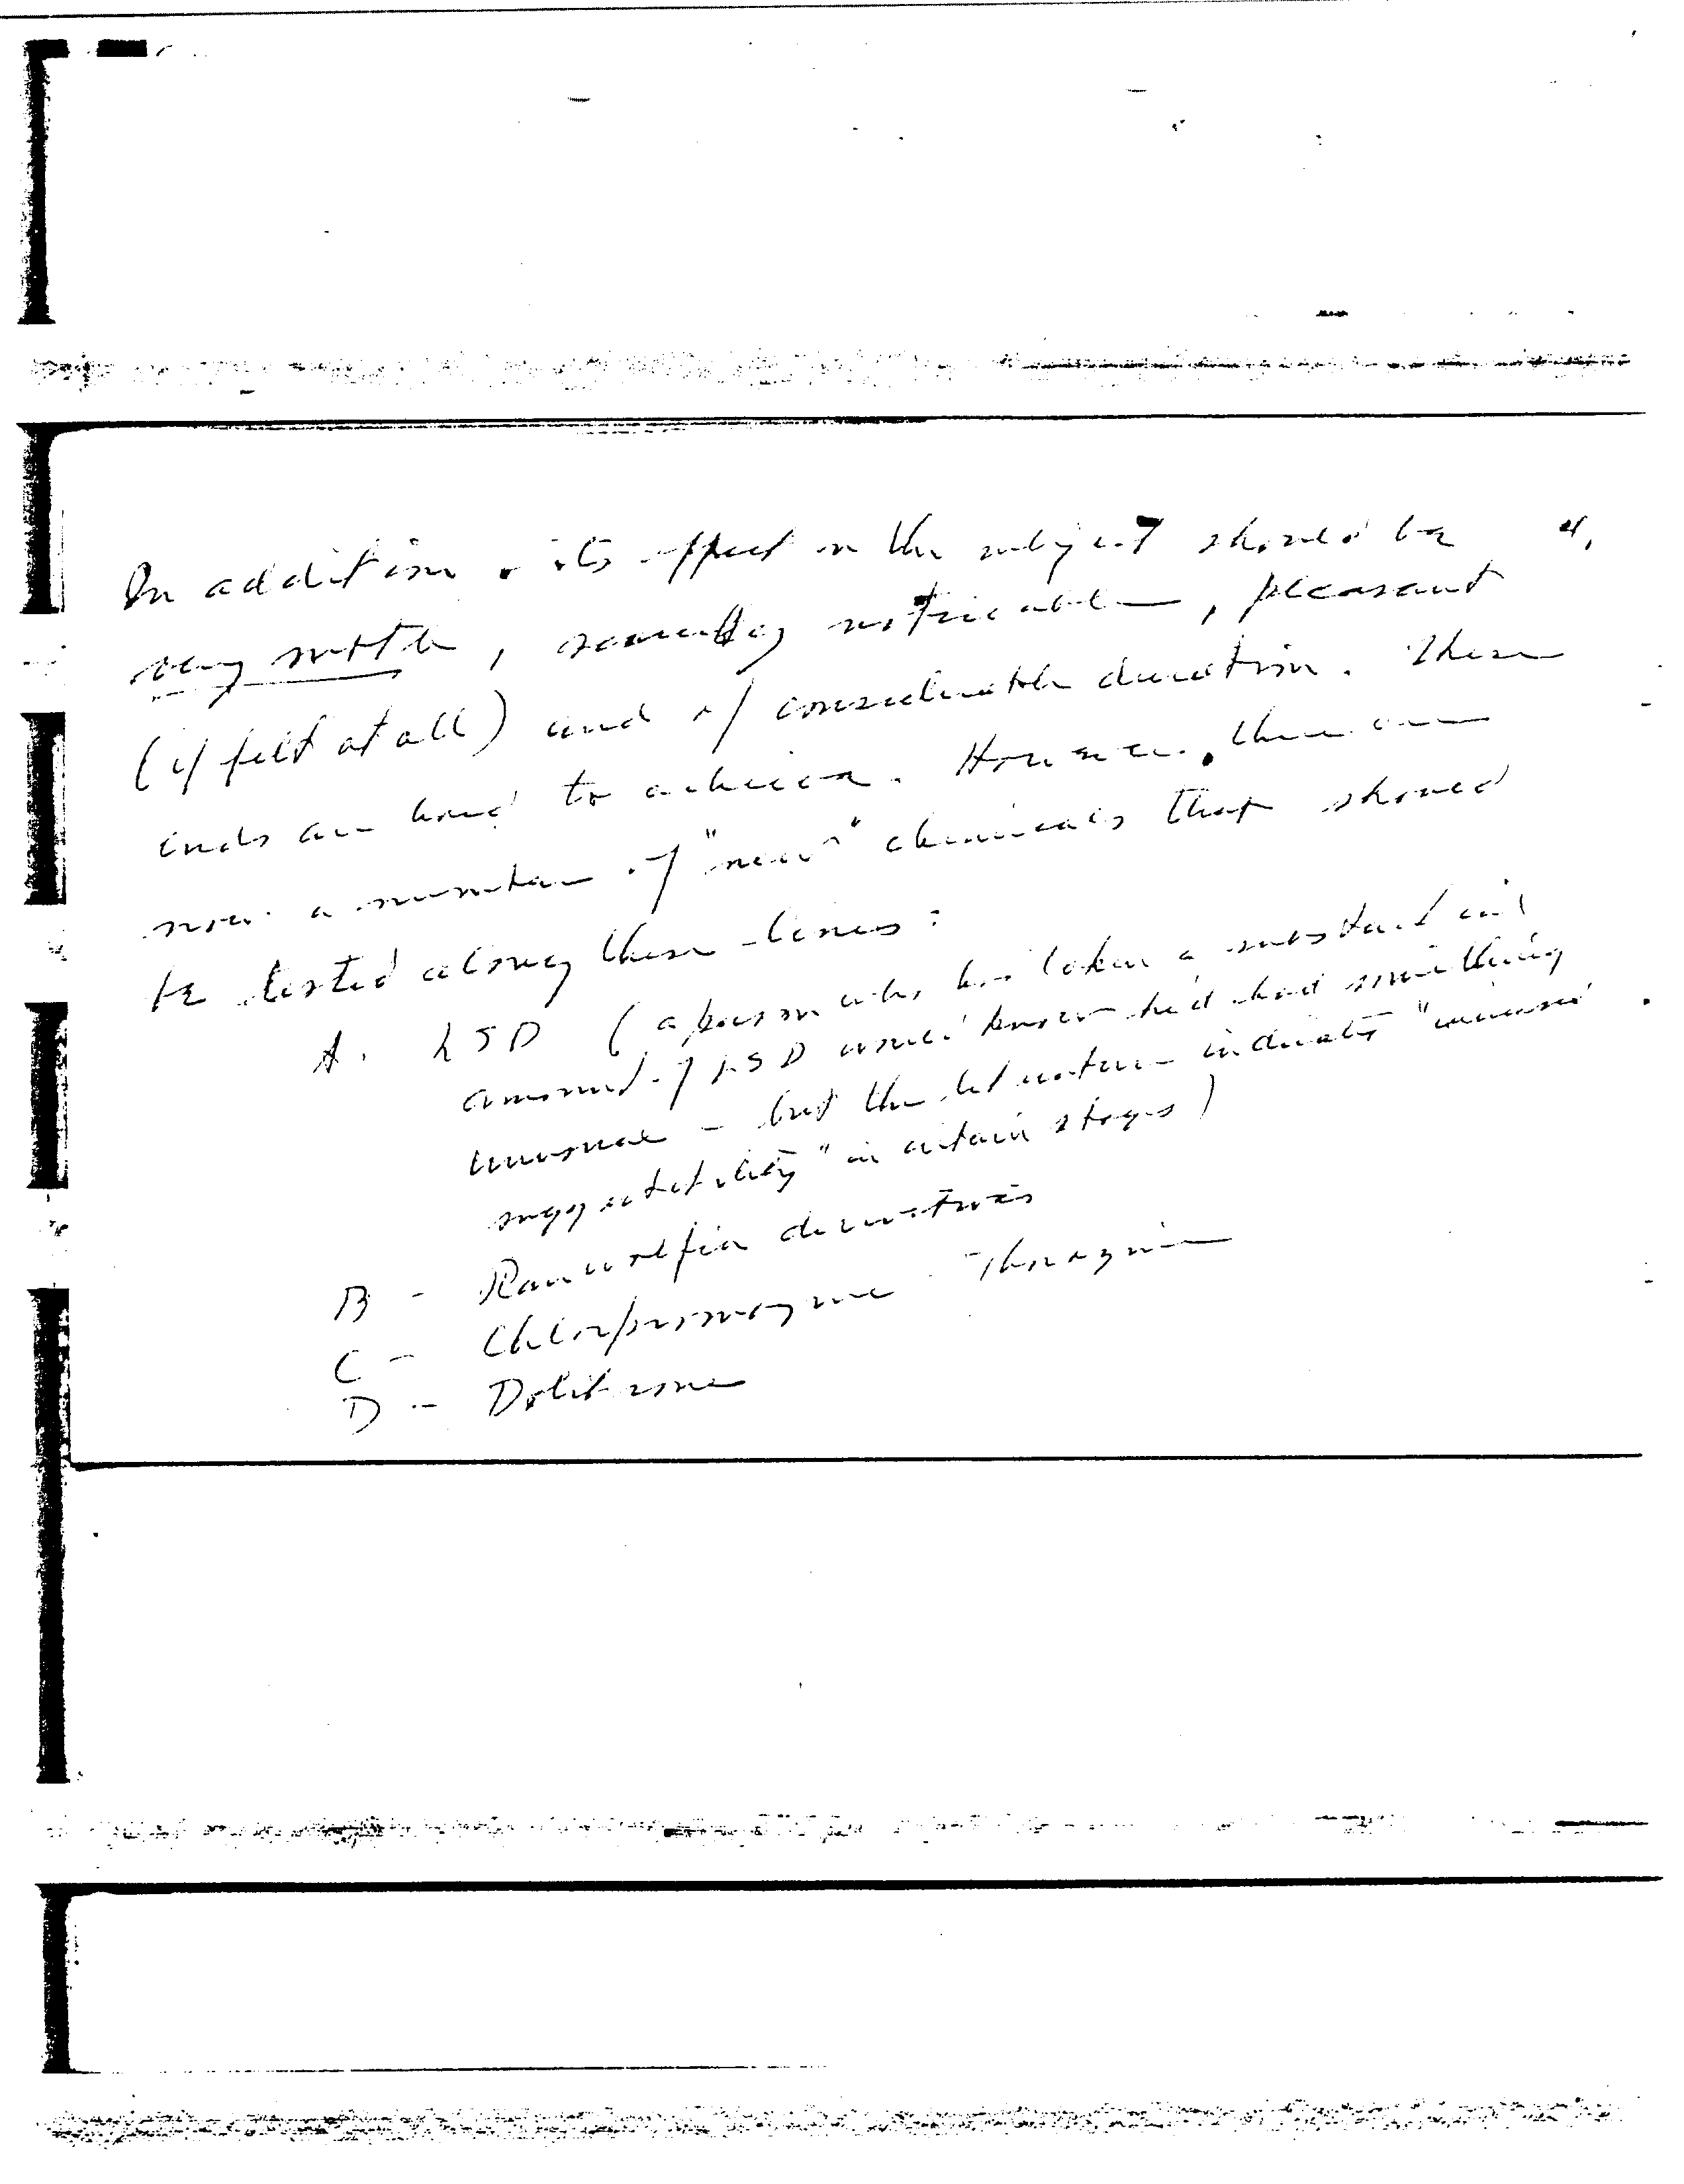 4.
In addition, its effect on the subject should be
very subtle, scarcely noticeable, pleasant
(if felt at all) and of considerable duration. These
ends are hard to achieve. However, there are
now a number of "new" chemicals that should
be tested along these lines:
A. LSD (a person who has taken a substantial
amount of LSD would know he'd had something
unusual - but the literature indicates "increased
suggestibility" in certain stages)
B - Rauwolfia derivatives
C - Chlorpromazine Thorazine
D - Dolitrone